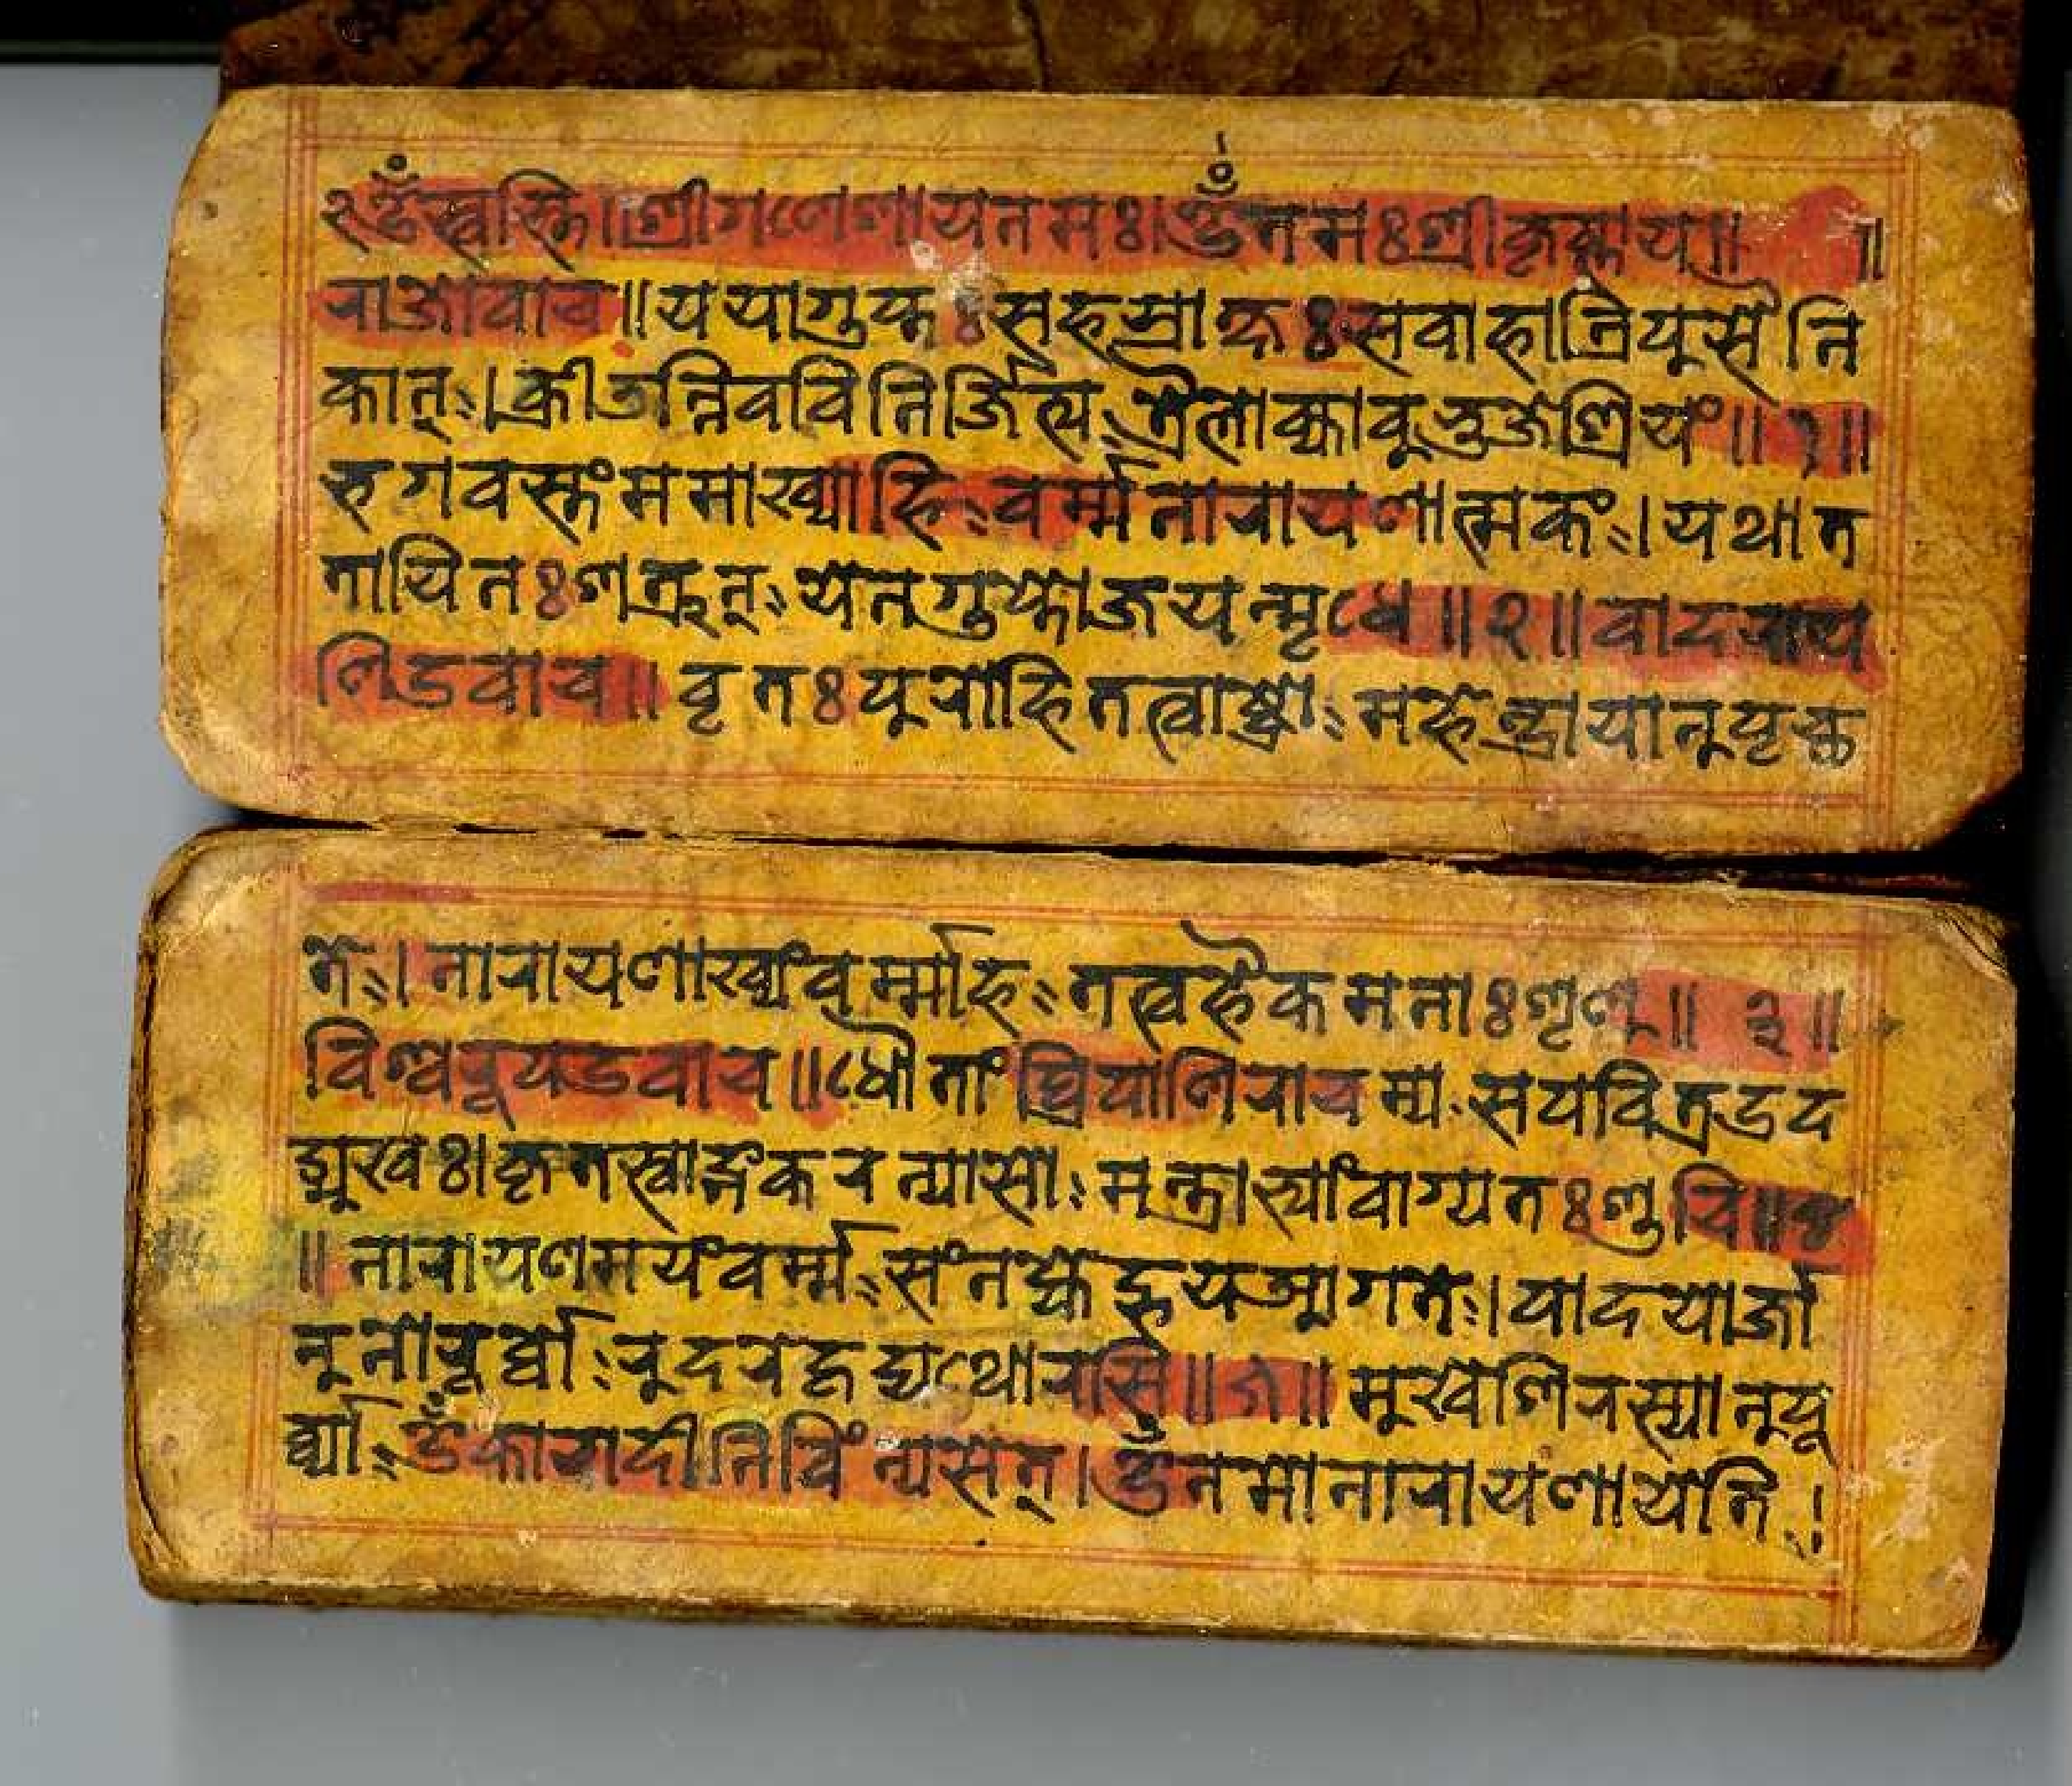 ॐस्वस्ति।श्रीगणेशायनमः।ॐनमःश्रीकृष्णाय॥ ॥
राजोवाच॥ययागुप्तःसहस्राक्षःसवाहान्रिपुसैनि
कान्।क्रीडन्निवविनिर्जित्यत्रैलोक्याबुभुजेश्रियं॥१॥
भगवस्तंममाख्याहिवर्म्मनारायणात्मकं।यथात
तायिनःशत्रून्येनगुप्तोजयन्मृधे॥२॥वादराय
णिउवाच॥वृतःपुरोहितत्वाष्ट्रोमहेन्द्रायानुपृच्छ
ते।नारायणाख्यंवर्म्माहतत्वहैकमनाःशृणु॥३॥
विश्वरूपउवाच॥धौतांघ्रिपाणिराचम्यसपवित्रउद
ङ्मुखः।कृतस्वाङ्गकरन्यासोमन्त्राभ्यांवाग्यतःशुचि॥४
॥नारायणमयंवर्म्मसंनह्येद्भयआगते।पादयोर्जा
नुनोरूर्व्वोरुदरेहृद्यथोरसि॥५॥मुखेशिरस्यानुपू
र्व्याॐकारादीनिविंन्यसेत्।ॐनमोनारायणायेति।